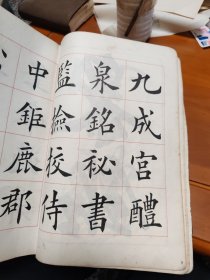 九成宮醴
泉銘祕書
監檢校侍
中鉅鹿郡